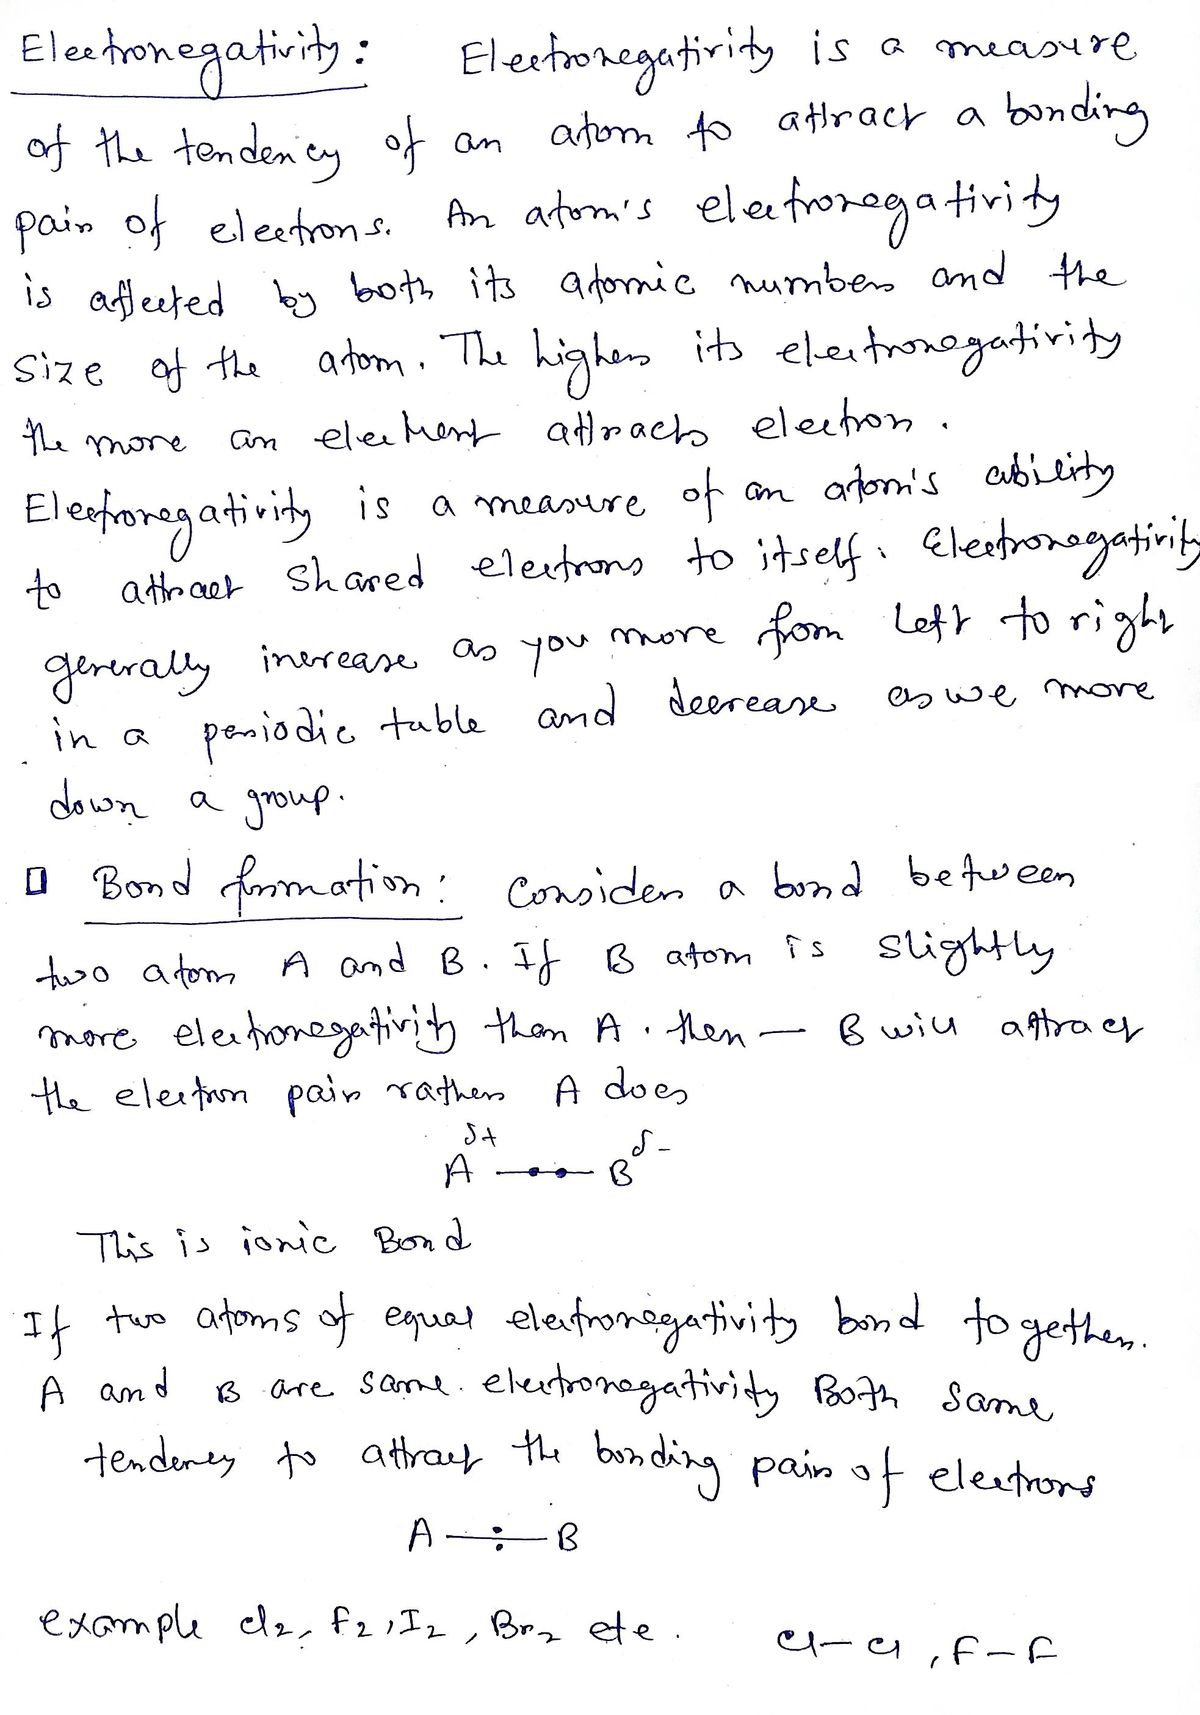 Electronegativity: Electronegativity is a measure
of the tendency of an atom to attract a bonding
pair of electrons. An atom's electronegativity
is affected by both its atomic number and the
size of the atom. The higher its electronegativity
the more an element attracts electron.
Electronegativity is a measure of an atom's ability
to attract shared electrons to itself. Electronegativity
generally increase as you move from left to right
in a periodic table and decrease as we move
down a group.
Bond formation: Consider a bond between
two atom A and B. If B atom is slightly
more electronegativity than A. then — B will attract
the electron pair rather A does
δ+ δ-
A —••— B
This is ionic Bond
If two atoms of equal electronegativity bond together.
A and B are same electronegativity Both same
tendency to attract the bonding pair of electrons
A —:— B
example Cl2, F2, I2, Br2 etc. Cl—Cl, F—F